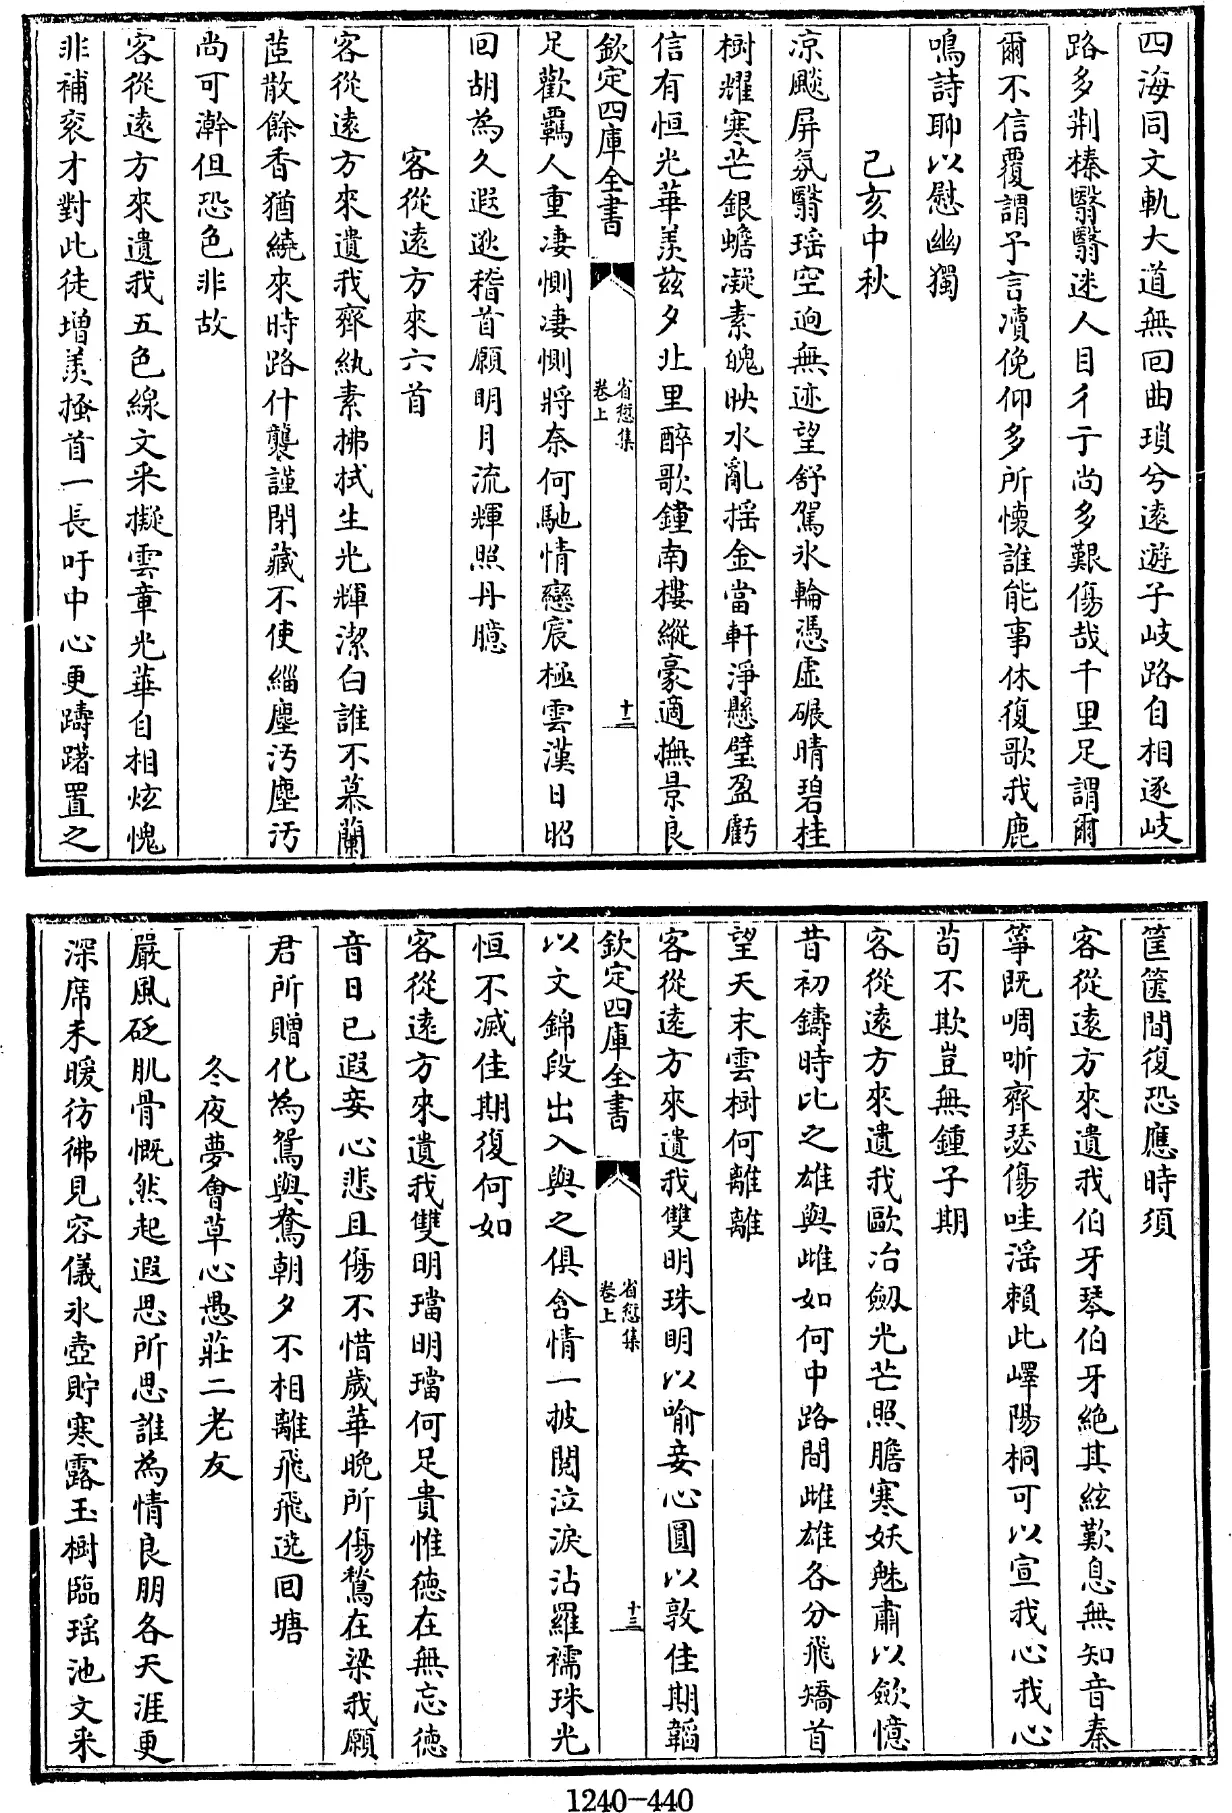 四海同文軌大道無回曲瑣兮遠遊子岐路自相逐岐
路多荆榛翳翳迷人目彳亍尚多艱傷哉千里足謂爾
爾不信覆謂予言凟俛仰多所懷誰能事休復歌我鹿
鳴詩聊以慰幽獨
己亥中秋
凉飈屏氛翳瑶空逈無迹望舒駕氷輪憑虚碾晴碧桂
樹耀寒芒銀蟾凝素魄映水亂揺金當軒淨懸璧盈虧
信有恒光華羨兹夕北里醉歌鐘南樓縱豪適撫景良
欽定四庫全書
省愆集
卷上
十二
足歡羈人重凄惻凄惻將奈何馳情戀宸極雲漢日昭
回胡為久遐逖稽首願明月流輝照丹臆
客從遠方來六首
客從遠方來遺我齊紈素拂拭生光輝潔白誰不慕蘭
茝散餘香猶繞來時路什襲謹閉藏不使緇塵汚塵汚
尚可澣但恐色非故
客從遠方來遺我五色線文采擬雲章光華自相炫愧
非補衮才對此徒增羨掻首一長吁中心更躊躇置之
筐篋間復恐應時須
客從遠方來遺我伯牙琴伯牙絶其絃歎息無知音秦
箏既啁哳齊瑟傷哇滛賴此嶧陽桐可以宣我心我心
苟不欺豈無鍾子期
客從遠方來遺我歐冶劔光芒照膽寒妖魅肅以歛憶
昔初鑄時比之雄與雌如何中路間雌雄各分飛矯首
望天末雲樹何離離
客從遠方來遺我雙明珠明以喻妾心圓以敦佳期韜
欽定四庫全書
省愆集
卷上
十三
以文錦段出入與之俱含情一披閲泣淚沾羅襦珠光
恒不滅佳期復何如
客從遠方來遺我雙明璫明璫何足貴惟德在無忘德
音日已遐妾心悲且傷不惜歲華晚所傷鶖在梁我願
君所贈化為鴛與鴦朝夕不相離飛飛遶回塘
冬夜夢會草心愚莊二老友
嚴風砭肌骨慨然起遐思所思誰為情良朋各天涯更
深席未暖彷彿見容儀氷壺貯寒露玉樹臨瑶池文采
1240-440